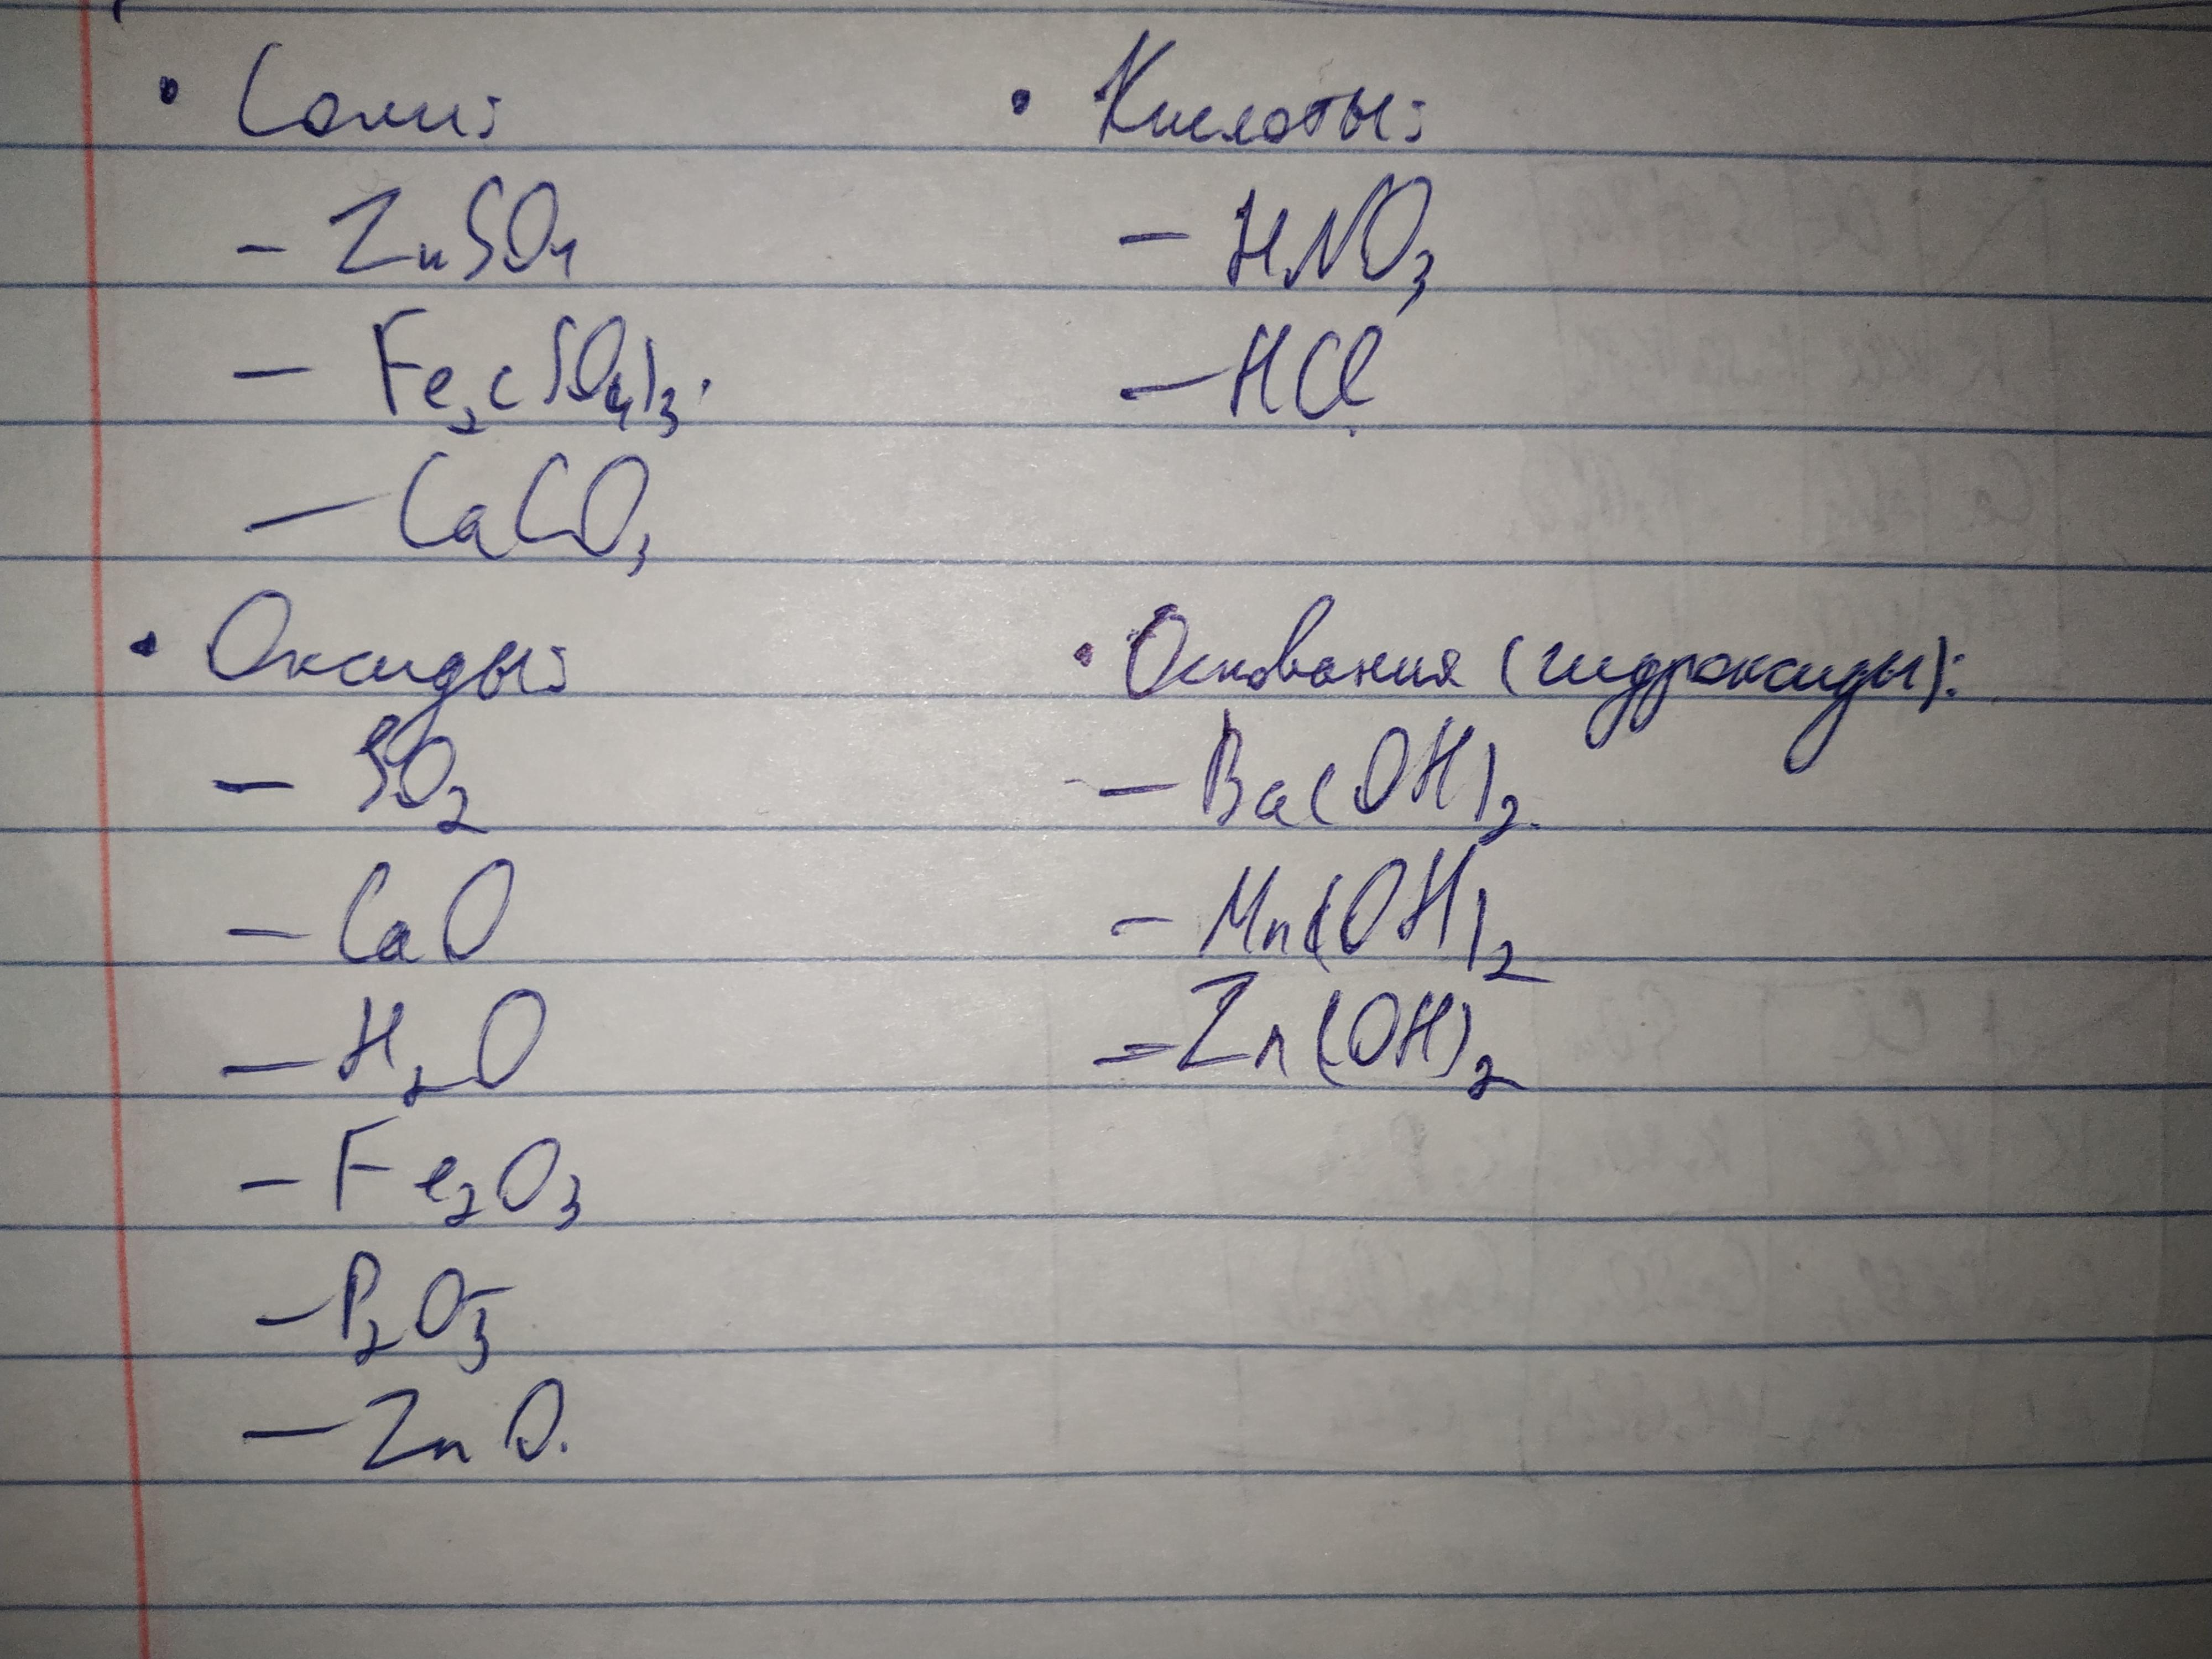 • Соли:
- ZnSO₄
- Fe₂(SO₄)₃.
- CaCO₃
• Кислоты:
- HNO₃
- HCl
• Оксиды:
- SO₂
- CaO
- H₂O
- Fe₂O₃
- P₂O₅
- ZnO.
• Основания (гидроксиды):
- Ba(OH)₂.
- Mn(OH)₂
- Zn(OH)₂